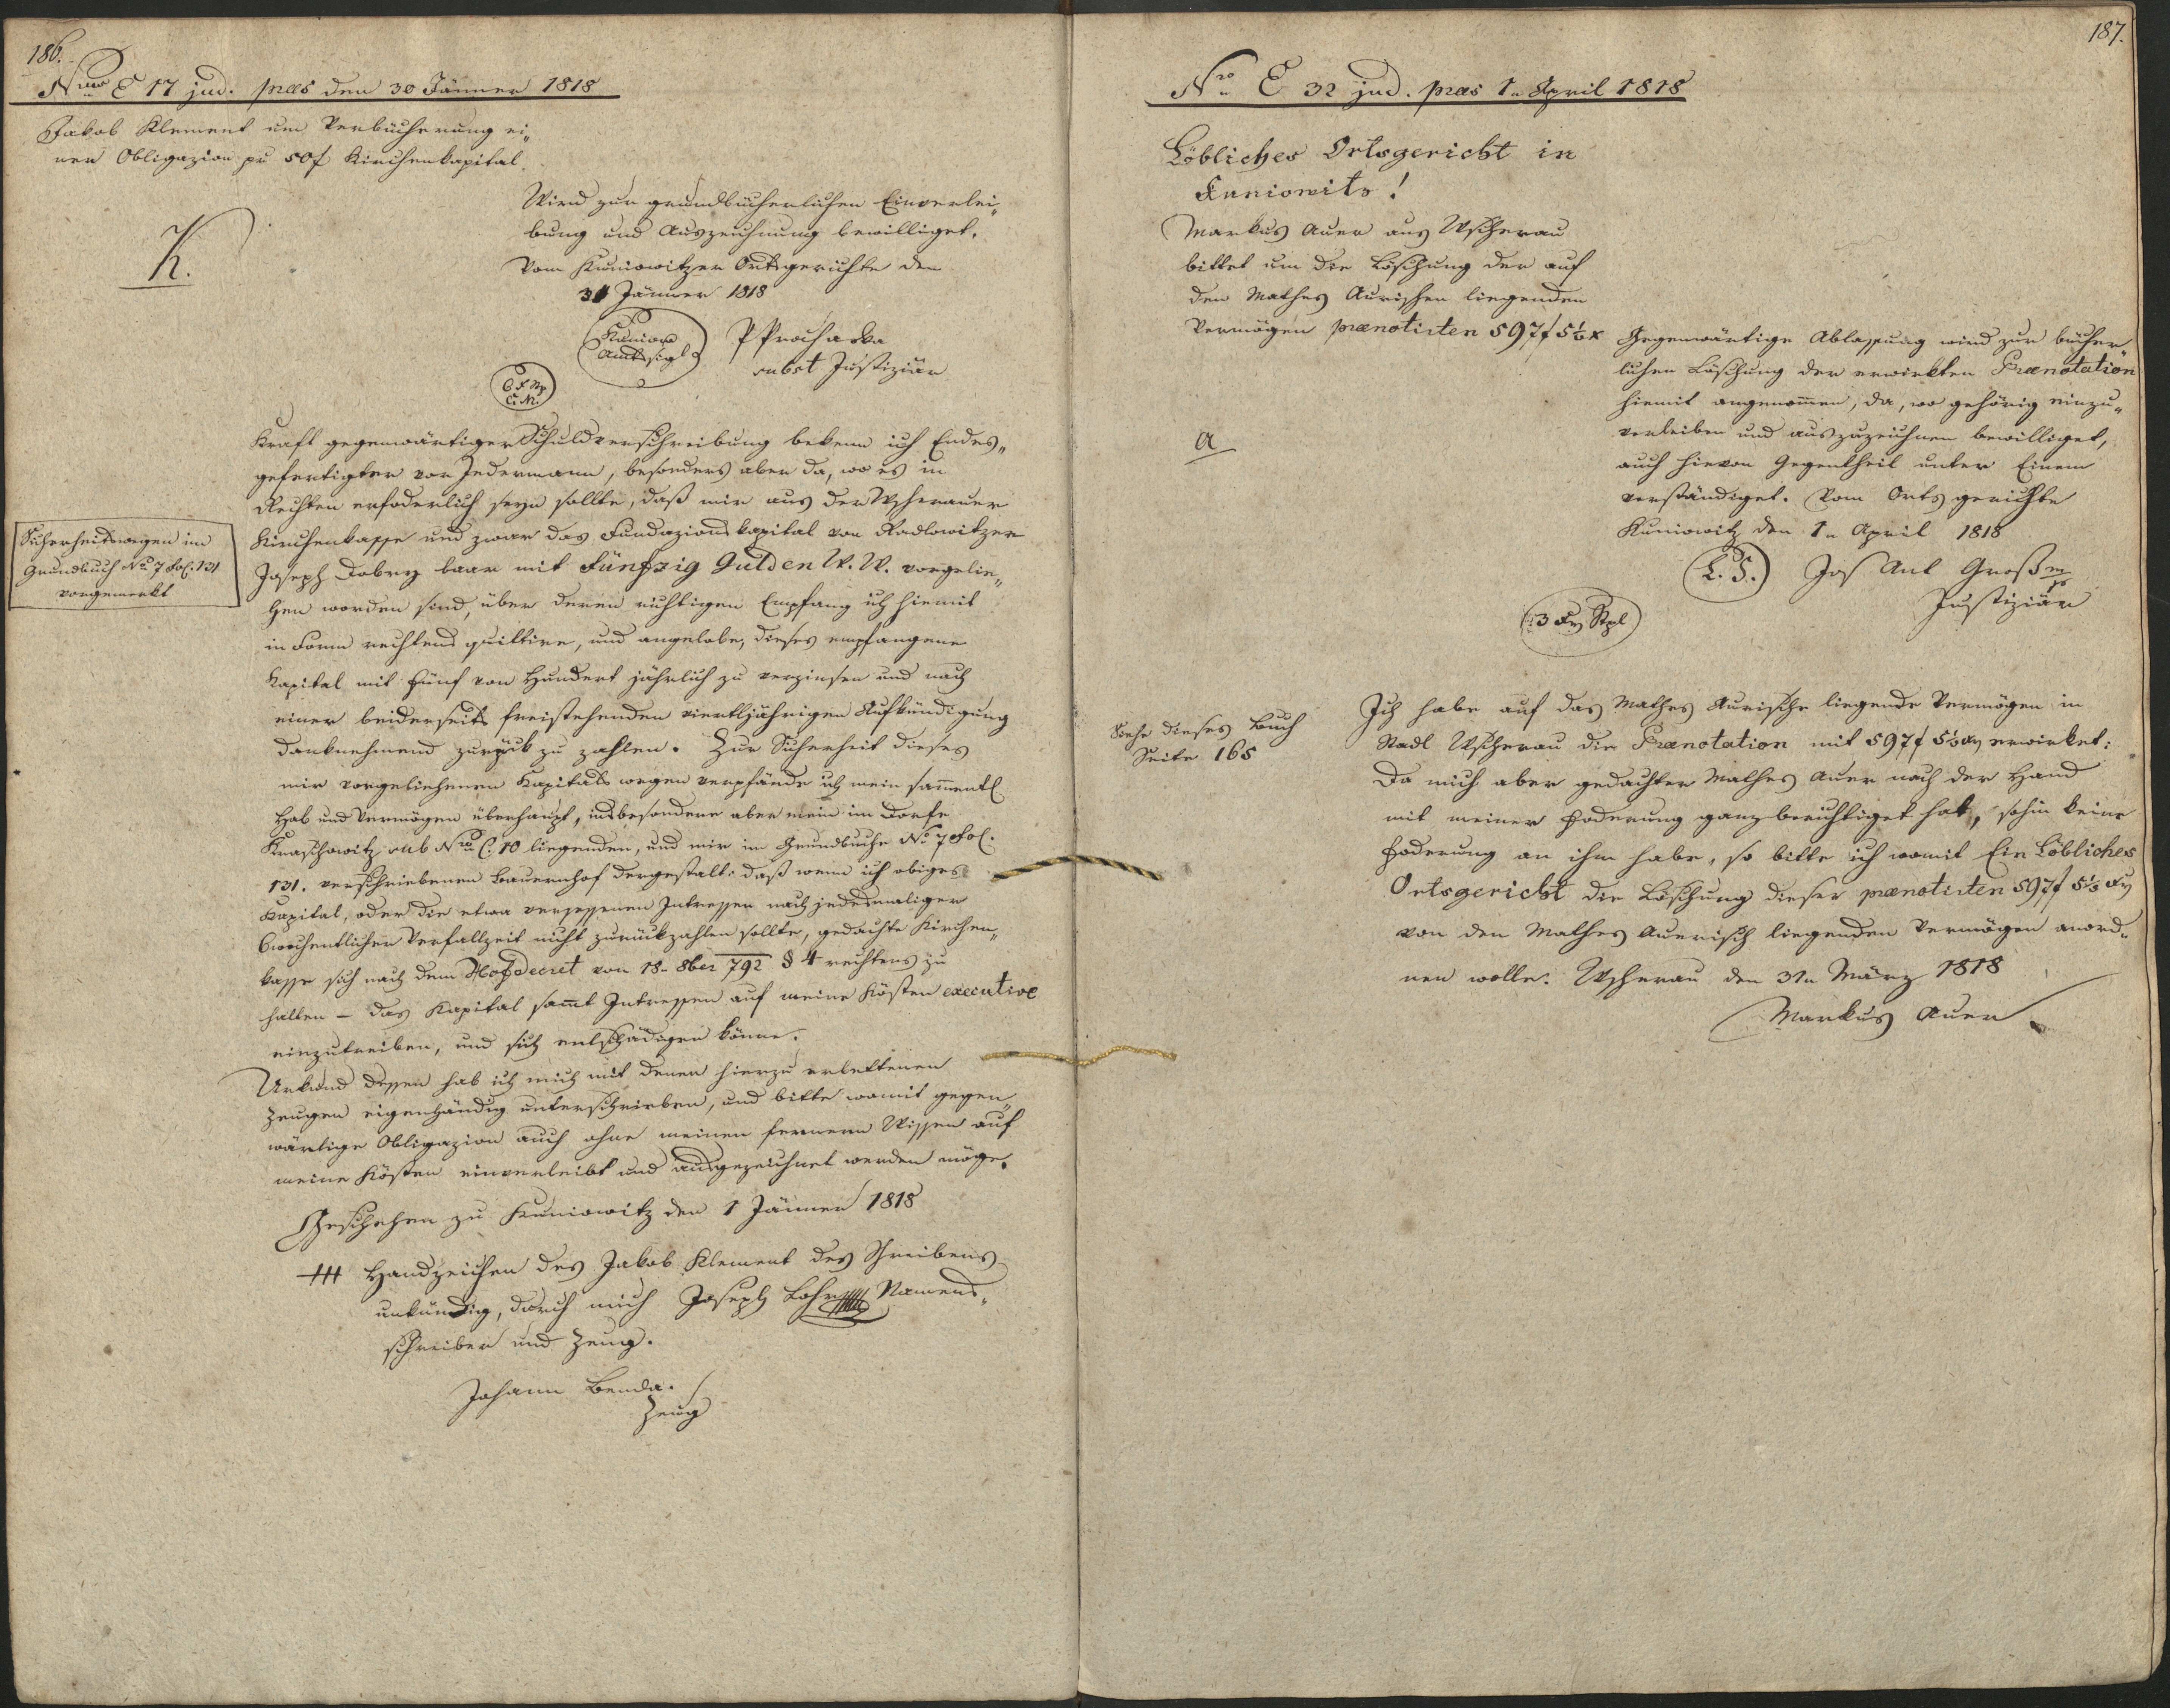 186.
Nro E 17 jud. præs den 30 Jänner 1818
Jakob Klement um Verbücherung ei„
ner Obligazion pr 50f Kirchenkapital.
Wird zur grundbücherlichen Einverlei„
bung und Auszeichnung bewilliget.
Vom Kuniowitzer Ortsgerichte den
31 Jänner 1818
K.
Kuniow
Amtssigl
P Prochaska
subst Justiziär
Kraft gegenwärtiger Schuldverschreibung bekenn ich Endes„
gefertigter vor Jedermann, besonders aber da, wo es in
Rechten erfoderlich seyn sollte, daß mir aus der Wscherauer
Kirchenkasse und zwar das Fundazionskapital von Radlowitzer
Joseph Dobry baar mit Fünfzig Gulden W. W. vorgelie„
hen worden sind, über deren richtigen Empfang ich hiemit
in Form rechtens quittire, und angelobe, dieses empfangene
Kapital mit Fünf von Hundert jährlich zu verzinsen und nach
einer beiderseits freistehenden viertljährigen Aufkündigung
danknehmend zurück zu zahlen. Zur Sicherheit dieses
mir vorgeliehenen Kapitals wegen verpfände ich mein sammentl
Hab und Vermögen überhaupt, insbesondere aber mein im Dorfe
Kraschowitz sub Nro C. 10 liegenden, und mir im Grundbuche No 7 Fol.
131. verschriebenen Bauernhof dergestalt: daß wenn ich obiges
Kapital, oder die etwa versessenen Intressen nach jedesmaliger
6wochentlicher Verfallzeit nicht zurückzahlen sollte, gedachte Kirchen„
kasse sich nach dem Hofdecret von 18n 8ber 792 § 4 rechtens zu
halten – das Kapital sammt Intressen auf meine Kösten executive
einzutreiben, und sich entschädigen könne.
Urkund dessen hab ich mich mit denen hierzu erbettenen
Zeugen eigenhändig unterschrieben, und bitte womit gegen„
wärtige Obligazion auch ohne meinen fernern Wissen auf
meine Kösten einverleibt und ausgezeichnet werden möge.
Geschehen zu Kuniowitz den 1 Jänner 1818
+++ Handzeichen des Jakob Klement des Schreibens
unkündig, durch mich Joseph Lohr Namens„
schreiber und Zeug.
Johann Benda.
Zeug
Sicherheitswegen im
Grundbuch No 7 Fol. 131
vorgemerkt
187.
Nro E 32 jud. præs 1n April 1818
Löbliches Ortsgericht in
Kuniowitz!
Markus Auer aus Wscherau
bittet um die Löschung der auf
den Mathes Aurischen liegenden
Vermögen prænotirten 597f 5⅓ x
Gegenwärtige Ablassung wird zur bücher„
lichen Löschung der erwirkten Prænotation
hiemit angenommen, da, wo gehörig einzu„
verleiben und auszuzeichnen bewilliget,
auch hievon Gegentheil unter Einem
verständiget. Vom Ortsgerichte
Kuniowitz den 1n April 1818
a
L. S.
Jos Ant Groß mp
Justiziär
3 Xr Stpl
Siehe dieses Buch
Seite 165
Ich habe auf das Mathes Aurische liegende Vermögen in
Stadl Wscherau die Prænotation mit 597f 5⅓ Xr erwirket:
Da mich aber gedachter Mathes Auer nach der Hand
mit meiner Foderung ganz berichtiget hat, sohin keine
Foderung an ihm habe, so bitte ich womit Ein Löbliches
Ortsgericht die Löschung dieser prænotirten 597f 5⅓ Xr
von den Mathes Auerisch liegenden Vermögen anord„
nen wolle. Wscherau den 31n März 1818
Markus Auer